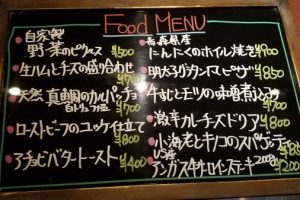 Food MENU
自家製
野菜のピクルス ¥500
生ハムとチーズの盛り合わせ
天然 真鯛のカルパッチョ
白トリュフ塩 ¥700
ローストビーフのユッケ仕立て
¥800
アチョビバタートースト ¥400
青森県産
にんにくのホイル焼き ¥700
明太子グラタンピザ ¥850
牛すじとモツの味噌煮込み
¥700
激辛カレーチーズドリア ¥800
小海老とキノコのスパゲッティ
US産
アンガス牛サーロインステーキ 200g
¥1200